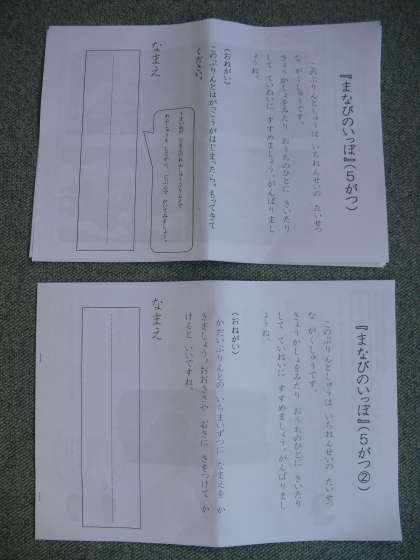 『まなびのいっぽ』(5がつ)
このぷりんとしゅうは いちねんせいの たいせつ
な がくしゅうです。
きょうかしょをみたり おうちのひとに きいたり
して ていねいに すすめましょう。がんばりまし
ょうね。
(おねがい)
このぷりんとはがっこうがはじまったら、もってきて
ください。
なまえ
『まなびのいっぽ』(5がつ②)
このぷりんとしゅうは いちねんせいの たいせつ
な がくしゅうです。
きょうかしょをみたり おうちのひとに きいたり
して ていねいに すすめましょう。がんばりまし
ょうね。
(おねがい)
かだいぷりんとの いちまいずつに なまえを か
きましょう。おおきさや むきに きをつけて か
けると いいですね。
なまえ